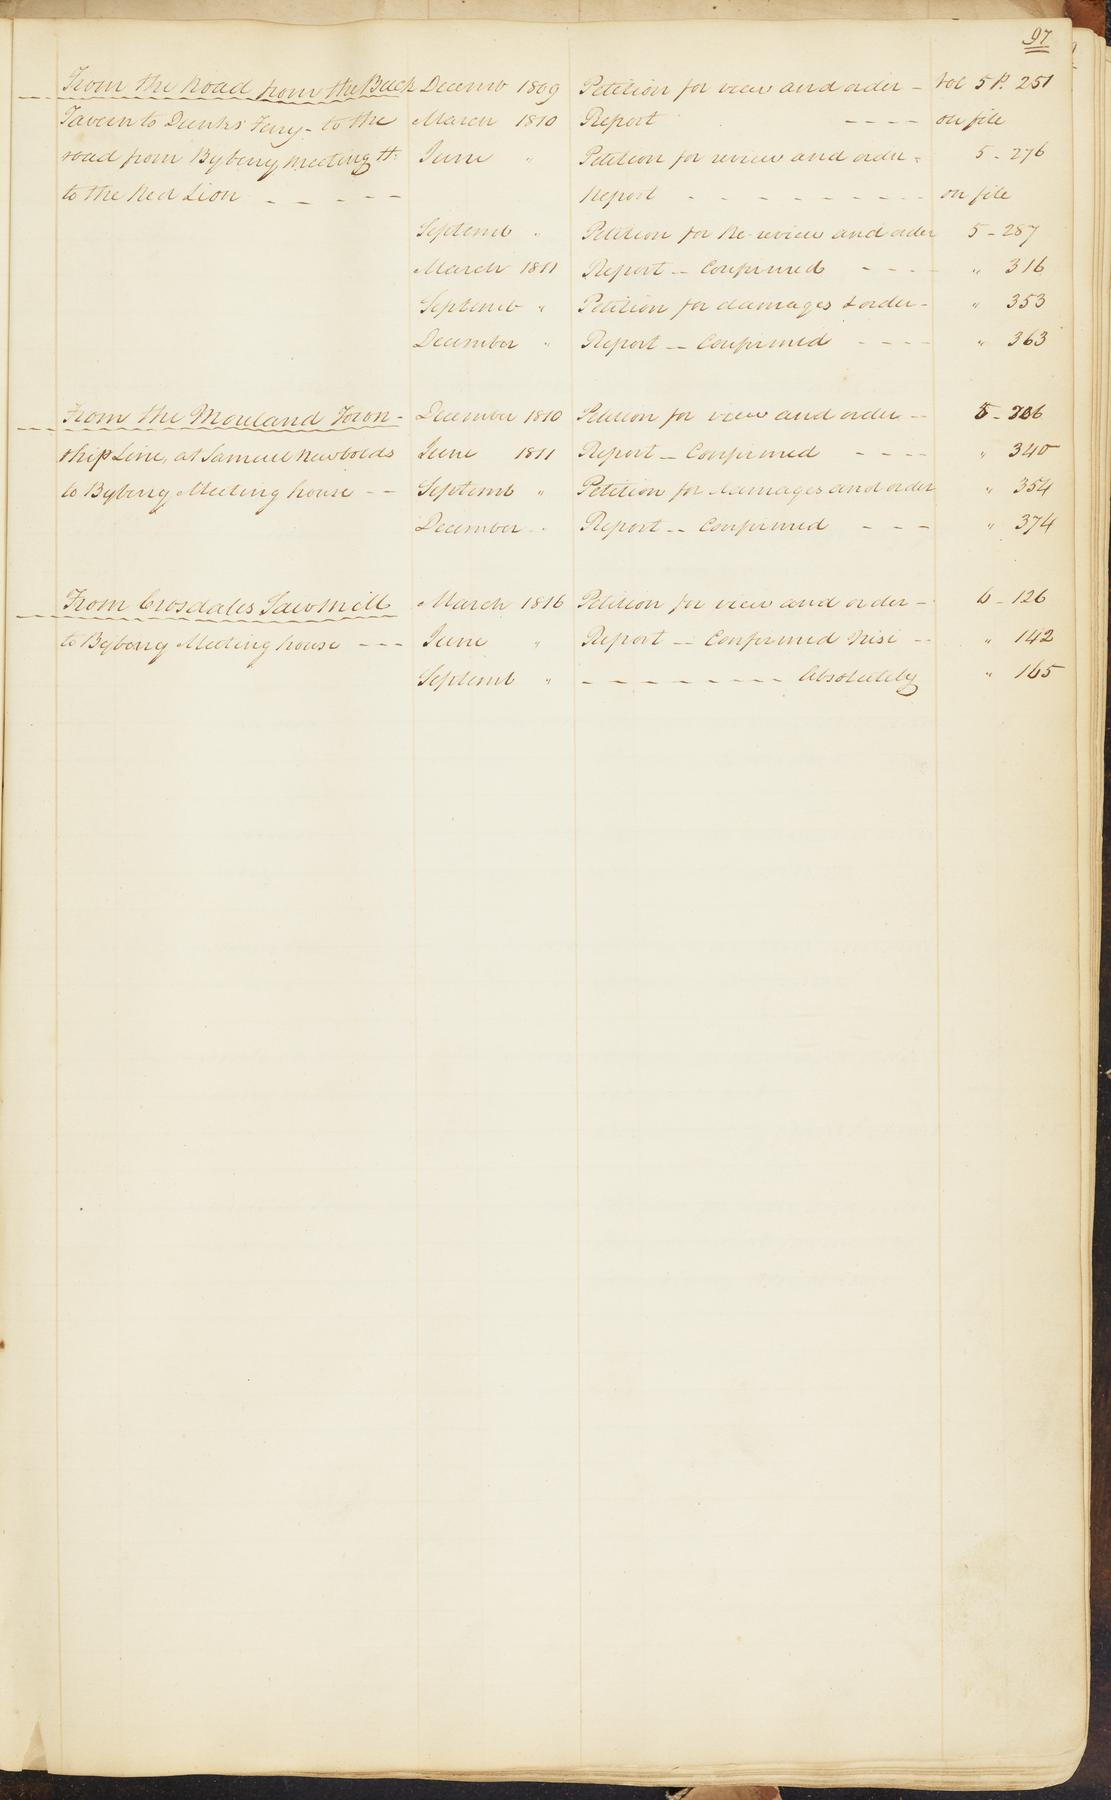 97
From the Road from the Buck Decemb 1809 Petition for view and order - Vol 5 P. 251
Tavern to Dunks Ferry - to the March 1810 Report - - - - on file
road from Byberry meeting H: June " Petition for review and order - 5 - 276
to the Red Lion - - - - - Report - - - - - - - - - on file
Septemb " Petition for Re-review and order 5 - 287
March 1811 Report -- Confirmed - - - - " 316
Septemb " Petition for damages & order - " 353
December " Report -- Confirmed - - - - " 363
From the Moreland Town- December 1810 Petition for view and order -- 5 -
ship Line, at Samuel Newbolds June 1811 Report -- Confirmed - - - - " 340
to Byberry Meeting house -- Septemb " Petition for damages and order " 354
December " Report -- Confirmed - - - " 374
From Crosdales Sawmill March 1816 Petition for view and order - 6 - 126
to Byberry Meeting house - - - June " Report -- Confirmed Nisi -- " 142
Septemb " - - - - - - - - - Absolutely " 165